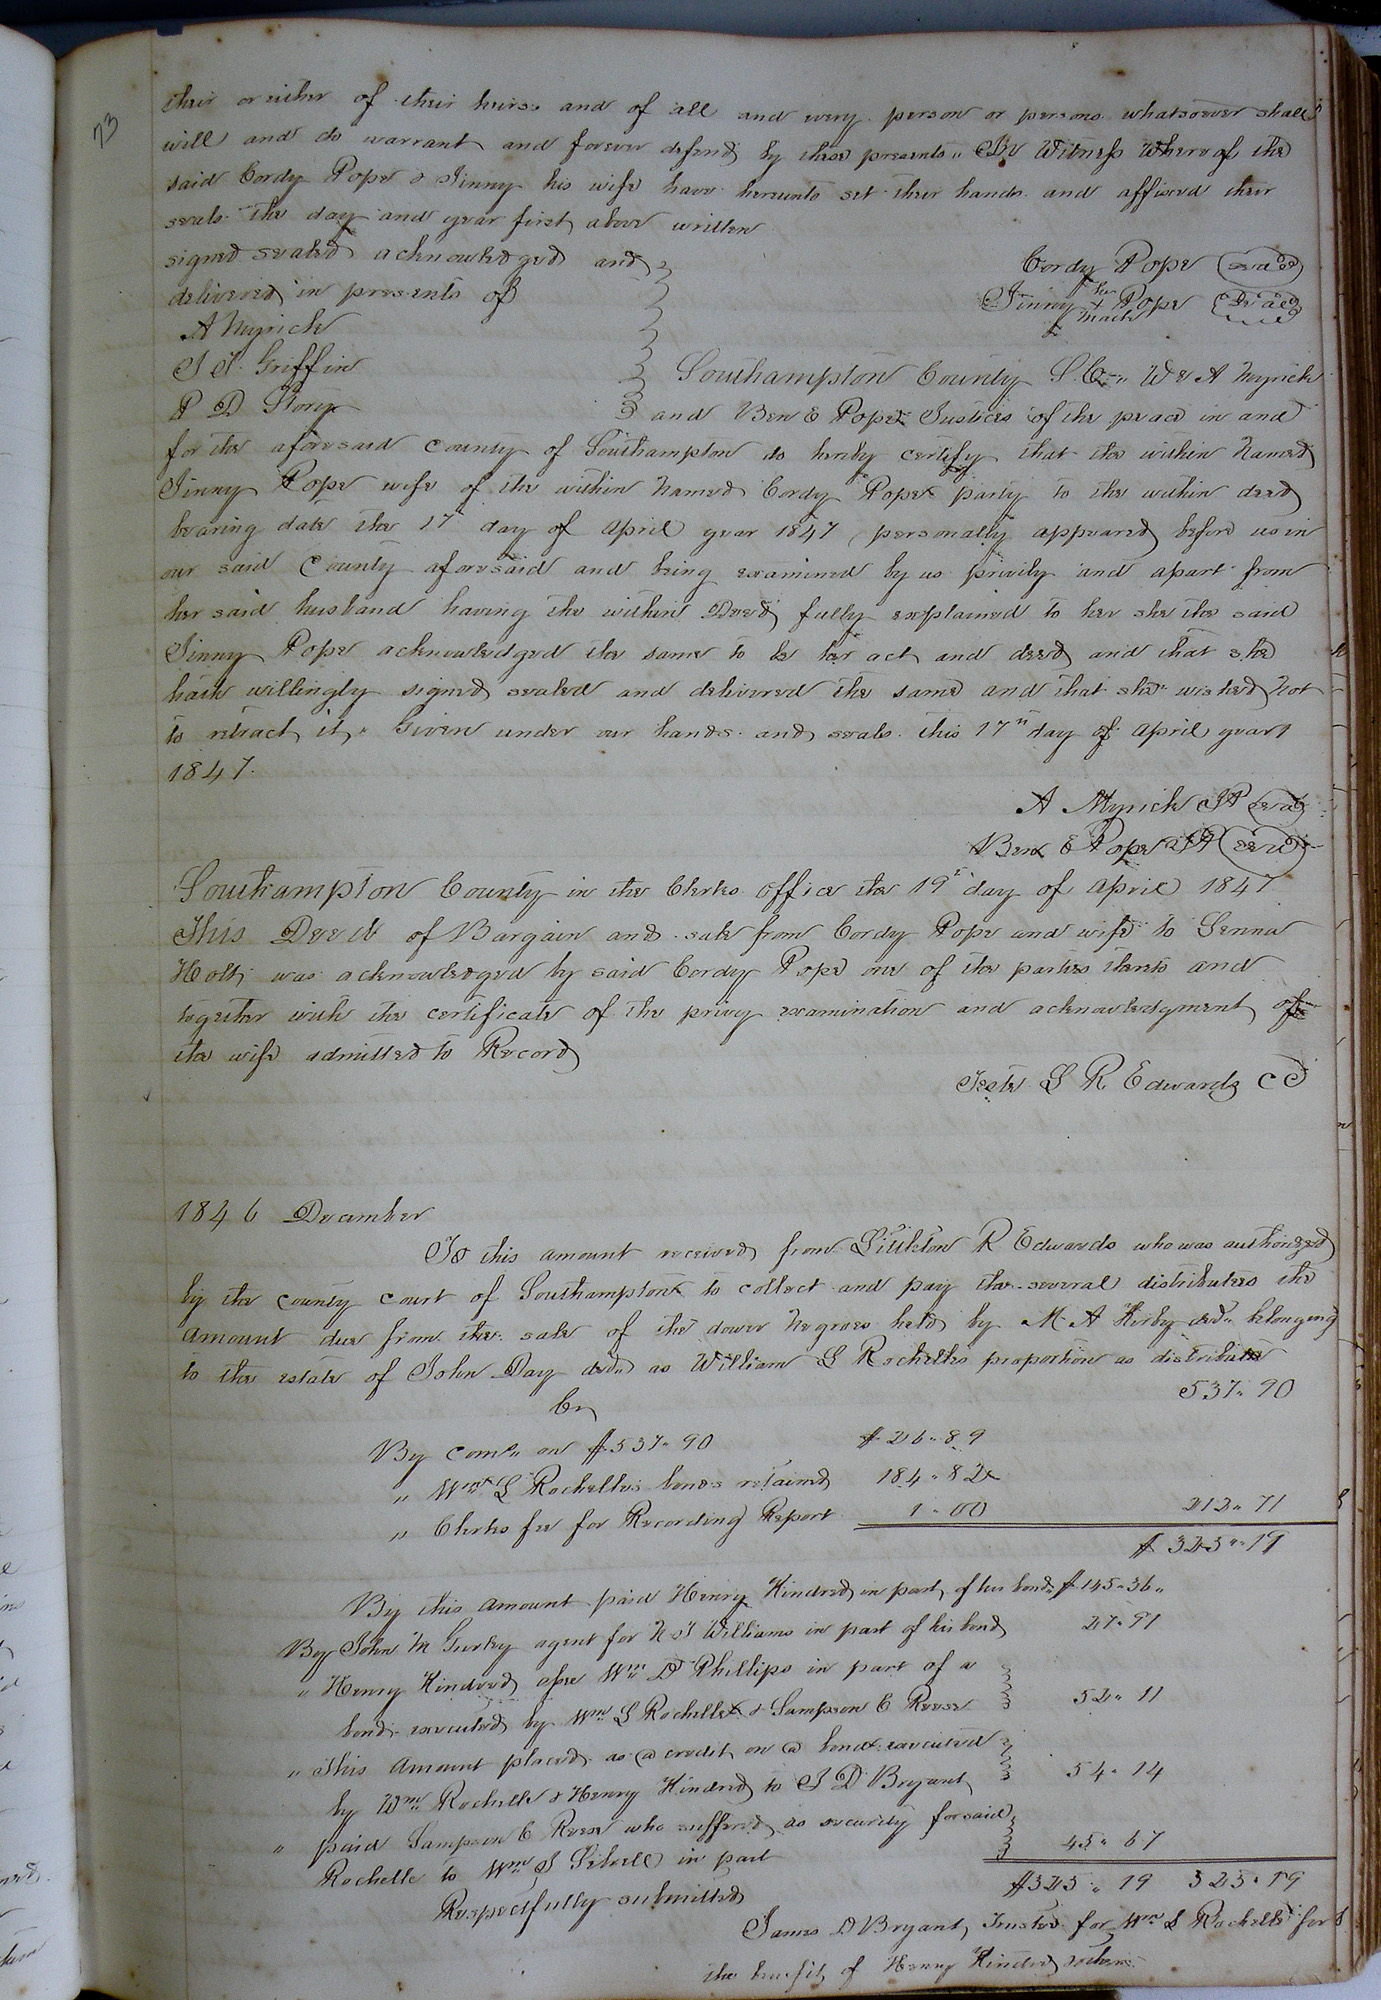 73
their or either of their heirs and of all and every person or persons whatsoever shall
will and do warrant and forever defend by these presents" In Witness Whereof the
said Cordy Pope & Jinny his wife have hereunto set their hands and affixed their
seals the day and year first above written
signed sealed acknowledged and
delivered in presents of
Cordy Pope (seal)
Jinny her X mark Pope (Seal)
A Myrick
J J Griffin
P D Story
Southampton County S.C. We A Myrick
and Ben E Pope Justices of the peace in and
for the aforesaid county of Southampton do hereby certify that the within named
Jinny Pope wife of the within named Cordy Pope party to the within deed
bearing date the 17 day of April year 1847, personally appeared before us in
our said County aforesaid and being examined by us privily and apart from
her said husband having the within Deed fully explained to her she the said
Jinny Pope acknowledged the same to be her act and deed and that she
hath willingly signed sealed and delivered the same and that she wished not
to retract it, Given under our hands and seals this 17th day of April year
1847.
A Myrick JP (seal)
Ben E Pope JP (seal)
Southampton County in the Clerks office the 19th day of April 1847
This Deed of Bargain and sale from Cordy Pope and wife to Senna
Holt was acknowledged by said Cordy Pope one of the parties thereto and
together with the certificate of the privy examination and acknowledgment of
the wife admitted to Record
Teste L R Edwards CC
1846 December
To this amount received from Littleton R Edwards who was authorized
by the county court of Southampton to collect and pay the several distributees the
amount due from the sale of the dower negroes held by M. A Kirby decd" belonging
to the estate of John Day decd as William L Rochelles proportion as distributee
537" 90
Cr
By comn" on $537"90 $26"89
" Wm L Rochelles bonds retained 184"82
" Clerks fee for Recording Report 1"00 212"71
$325"19
By this amount paid Henry Kindred in part of his bond" $145"36"
By John M Gurley agent for N J Williams in part of his bond 27"91
" Henry Kindred assee Wm D Phillips in part of a
bond executed by Wm L Rochelle & Sampson C Reese 52"11
" This Amount placed as a credit on a bond executed
by Wm Rochelle & Henry Kindred to J D Bryant 54"14
" paid Sampson C Reese who suffered as security for said
Rochelle to Wm J Sebrell in part 45"67
$325"19 325"19
Respectfully submitted
James D Bryant, Trustee for Wm L Rochelle for
the benefit of Henry Kindred & others